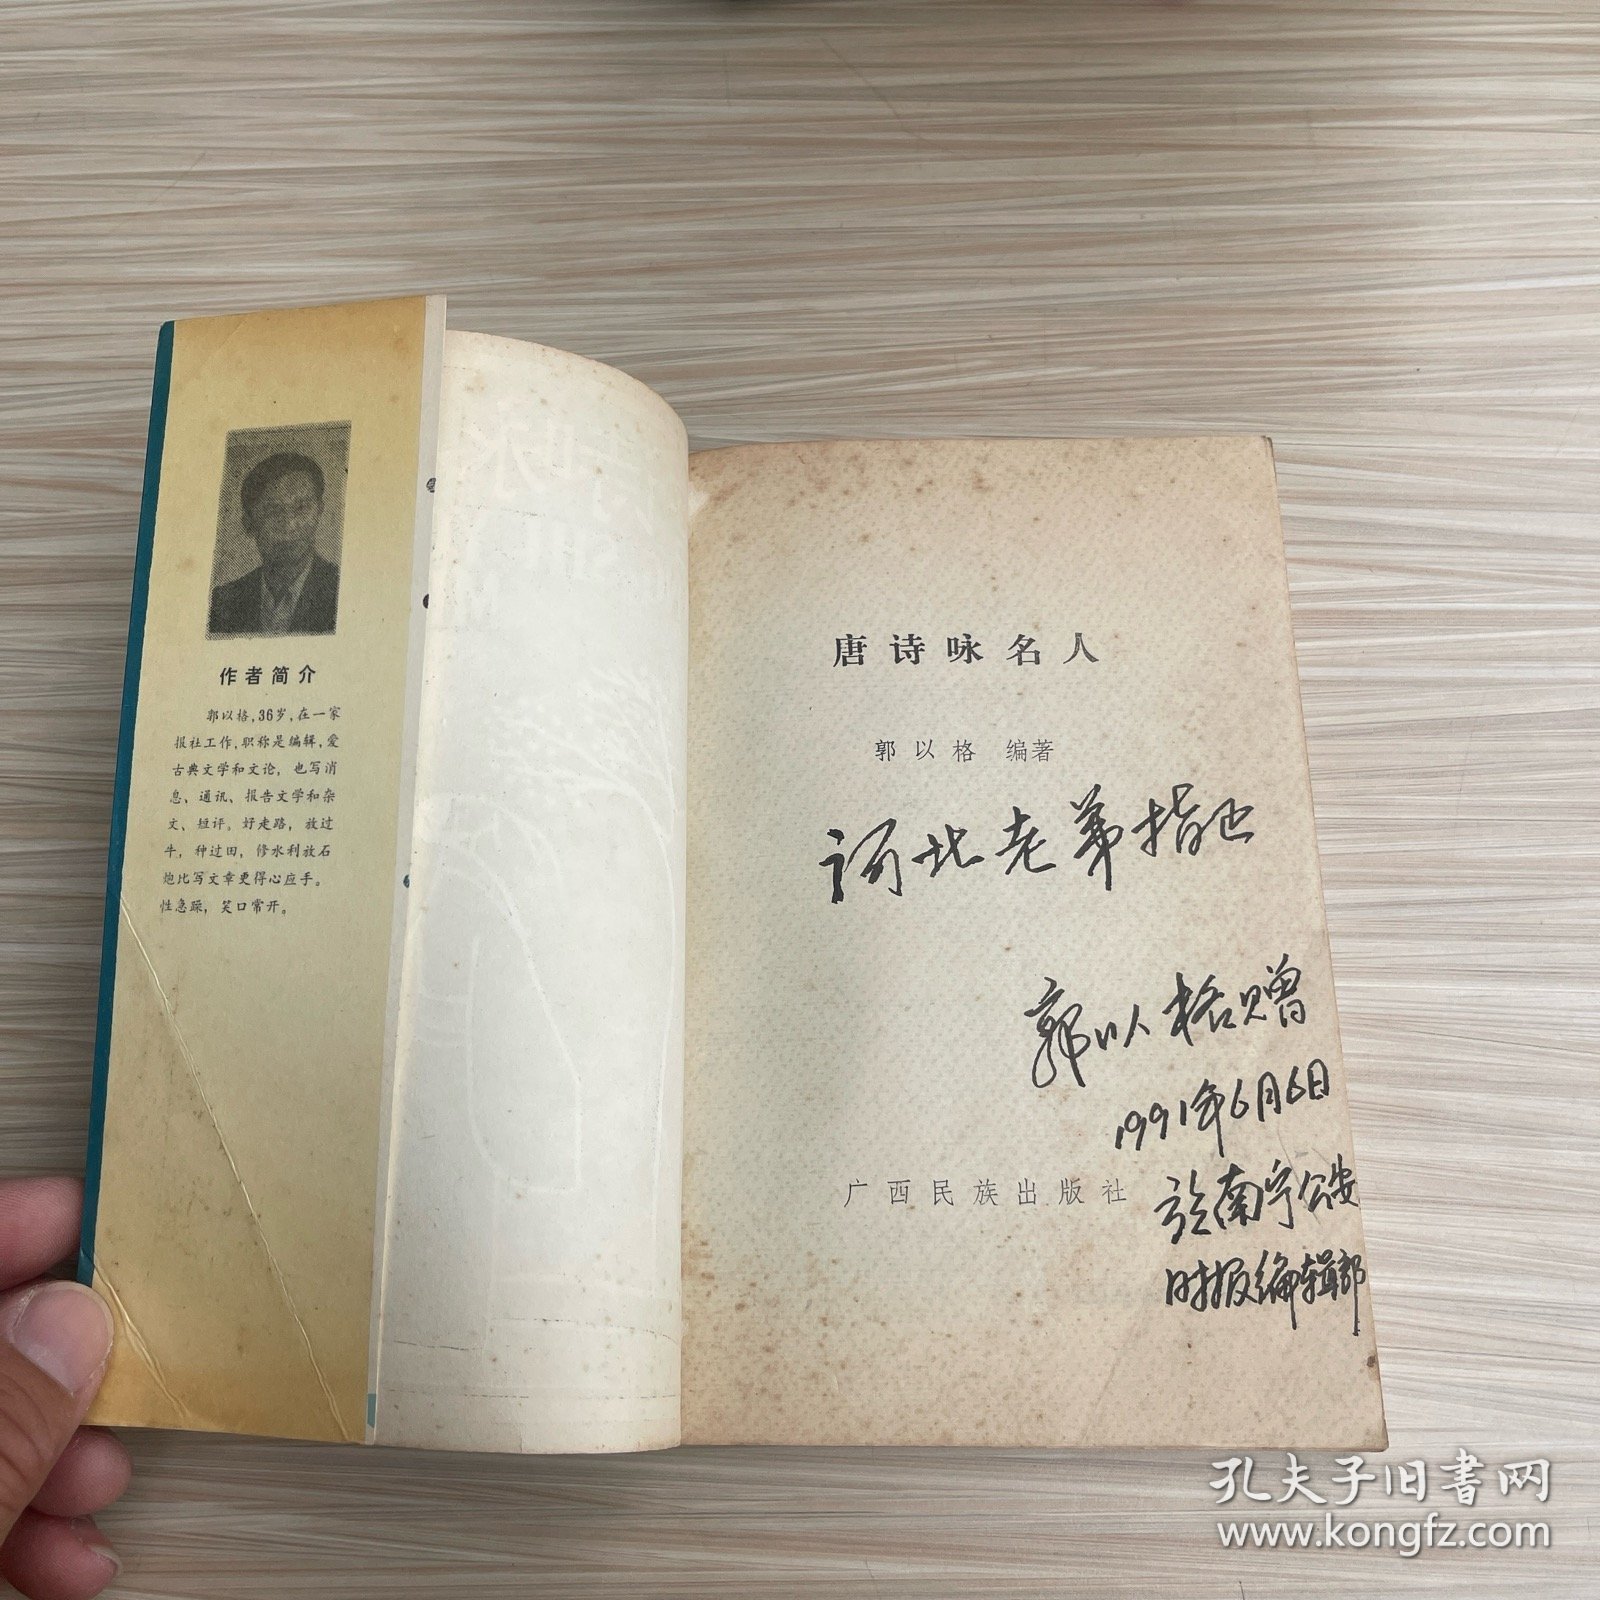 作者简介
郭以格，36岁，在一家
报社工作，职称是编辑，爱
古典文学和文论，也写消
息、通讯、报告文学和杂
文、短评。好走路，放过
牛，种过田，修水利放石
炮比写文章更得心应手。
性急躁，笑口常开。
唐诗咏名人
郭以格 编著
河北老弟指正
郭以格赠
1991年6月6日
于南宁公安
时报编辑部
广西民族出版社
孔夫子旧书网
www.kongfz.com